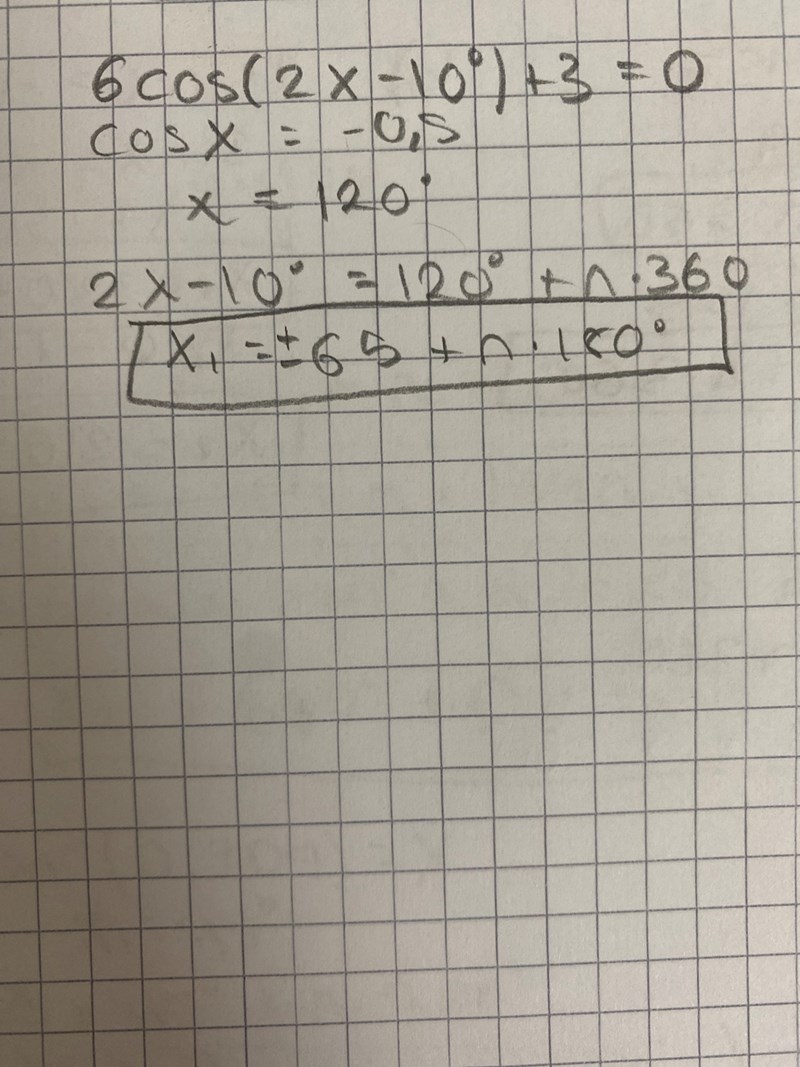 6cos(2x-10°)+3 = 0
cosx = -0,5
x = 120°
2x-10° = 120° + n·360
x₁ = ±65 + n·180°